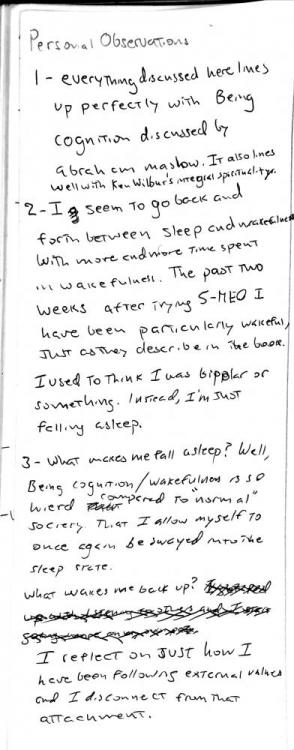 Personal Observations
1 - everything discussed here lines
up perfectly with Being
cognition discussed by
abraham maslow. It also lines
well with Ken Wilbur's integral spirituality.
2 - I seem to go back and
forth between sleep and wakefulness
with more and more time spent
in wakefulness. The past two
weeks after trying 5-MEO I
have been particularly wakeful,
Just as they describe in the book.
I used to think I was bipolar or
something. Instead, I'm Just
falling asleep.
3 - What makes me fall asleep? Well,
Being cognition/wakefulness is so
wierd compared to "normal"
society that I allow myself to
once again be swayed into the
sleep state.
What wakes me back up?
I reflect on JUST how I
have been following external values
and I disconnect from that
attachment.